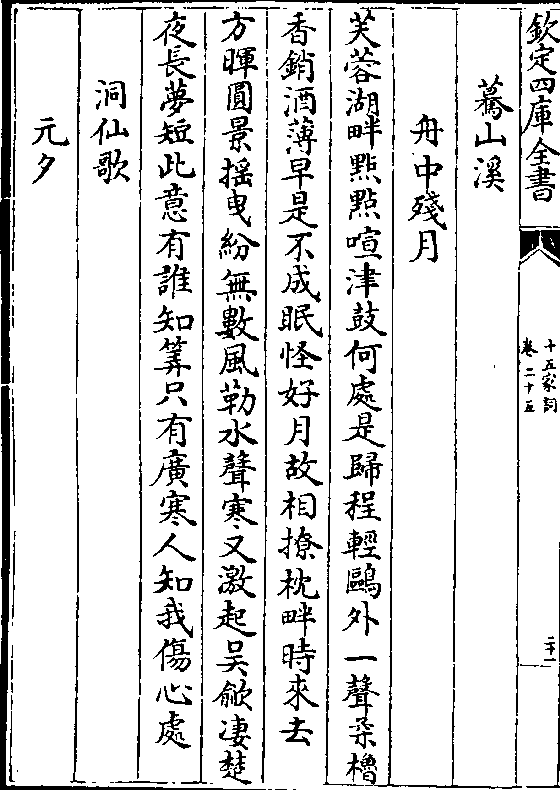 欽定四庫全書
十五家詞
卷二十五
二十一
驀山溪
舟中殘月
芙蓉湖畔點點喧津鼓何處是歸程輕鷗外一聲柔櫓
香銷酒薄早是不成眠怪好月故相撩枕畔時來去
方暉圓景揺曳紛無數風勒水聲寒又激起吴歈凄楚
夜長夢短此意有誰知筭只有廣寒人知我傷心處
洞仙歌
元夕